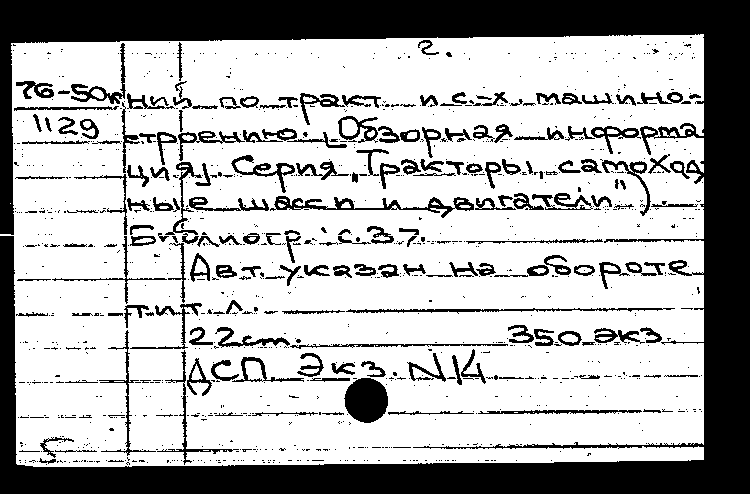 2.
76-50к ний по тракт. и с.-х. машино-
1129 строению. [Обзорная информа
ция]. Серия „Тракторы, самоход
ные шасси и двигатели").
Библиогр.: с.37.
Авт. указан на обороте
тит. л.
22cm. 350 экз.
ДСП. Экз. N14.